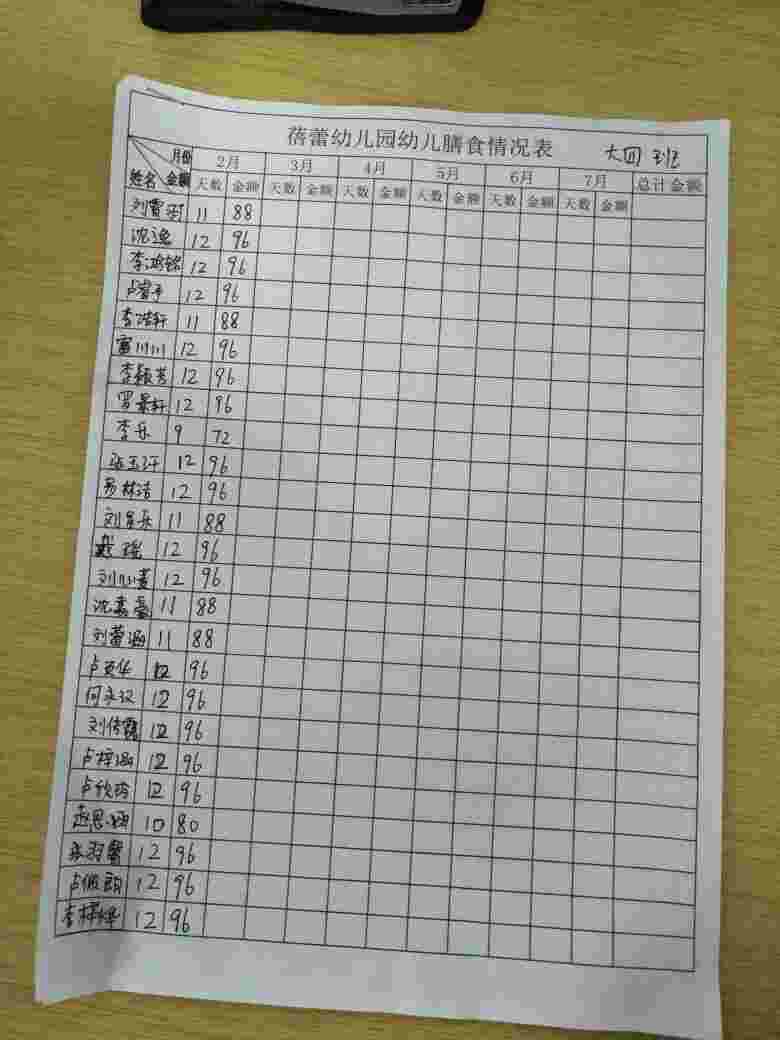 蓓蕾幼儿园幼儿膳食情况表 大四 班
月份 2月 3月 4月 5月 6月 7月 总计金额
姓名 金额 天数 金额 天数 金额 天数 金额 天数 金额 天数 金额 天数 金额
刘 11 88
沈逸 12 96
李鸿铭 12 96
卢 12 96
李浩轩 11 88
雷川川 12 96
李颖芳 12 96
罗景轩 12 96
李乐 9 72
张玉 12 96
易林洁 12 96
刘 乐 11 88
瑶 12 96
刘 12 96
沈嘉 11 88
刘蕾涵 11 88
卢 12 96
何 12 96
刘 12 96
卢梓涵 12 96
卢欣 12 96
赵思 10 80
张羽馨 12 96
卢俊朗 12 96
李梓烨 12 96